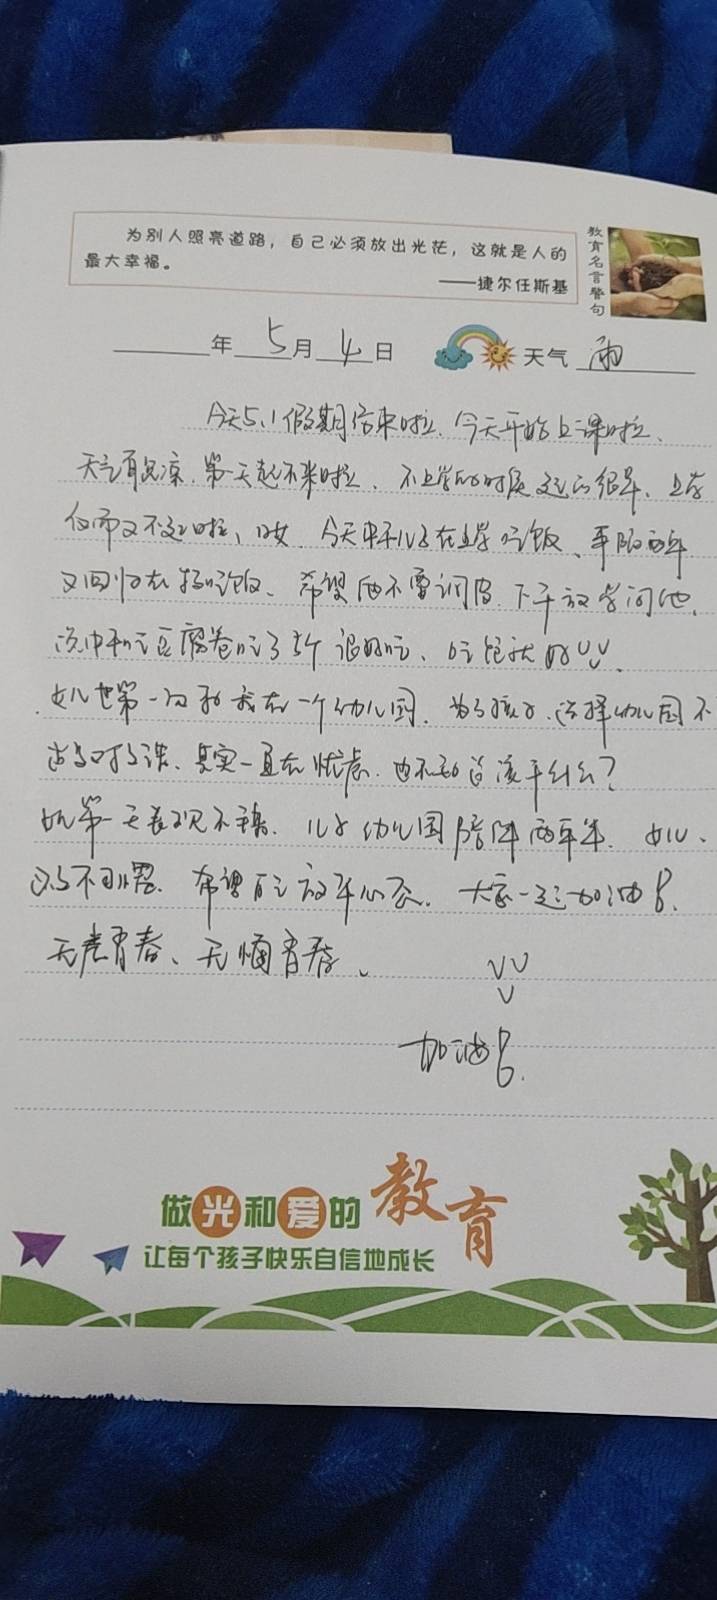 为别人照亮道路，自己必须放出光芒，这就是人的
最大幸福。
——捷尔任斯基
教育名言警句
年 5月 4日 天气 雨
今天5.1假期结束啦、今天开始上课啦、
天气有点凉、第一天起不来啦、不上学的时候起的很早、上学
反而又不起啦、哎、今天中午儿子在上学吃饭、两年
又回归在吃饭、希望他不要调皮、下午放学问他、
说中午吃豆腐卷吃了5个很好吃、吃饱就好
女儿也第一次和我在一个幼儿园、为了孩子、选择幼儿园不
其实一直在忧虑、也不知道该干什么？
女儿第一天表现不错、儿子幼儿园陪伴两年半、女儿、
希望自己放平心态、大家一起加油
无悔青春、
加油
做光和爱的教育
让每个孩子快乐自信地成长